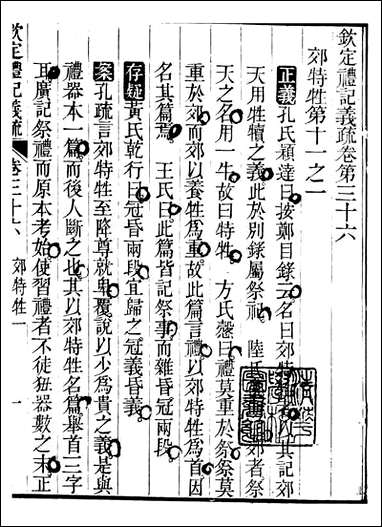 欽定禮記義疏卷第三十六
郊特牲第十一之一
正義孔氏穎達曰按鄭目錄云名曰郊特牲者以其記郊
天用騂犢之義此於別錄屬祭祀 陸氏 郊者祭
天之名用一牛故曰特牲 方氏慤曰禮莫重於祭祭莫
重於郊而郊以養牲為重故此篇言禮以郊特牲為首因
名其篇焉 王氏曰此篇皆記祭事而雜昏冠兩段
存疑黃氏乾行曰冠昏兩段宜歸之冠義昏義
案孔疏言郊特牲至降尊就卑覆說以少為貴之義是與
禮器本一篇而後人斷之也其以郊特牲名篇舉首三字
耳廣記祭禮而原本考始使習禮者不徒狃器數之末正
欽定禮記義疏 卷三十六 郊特牲一 一